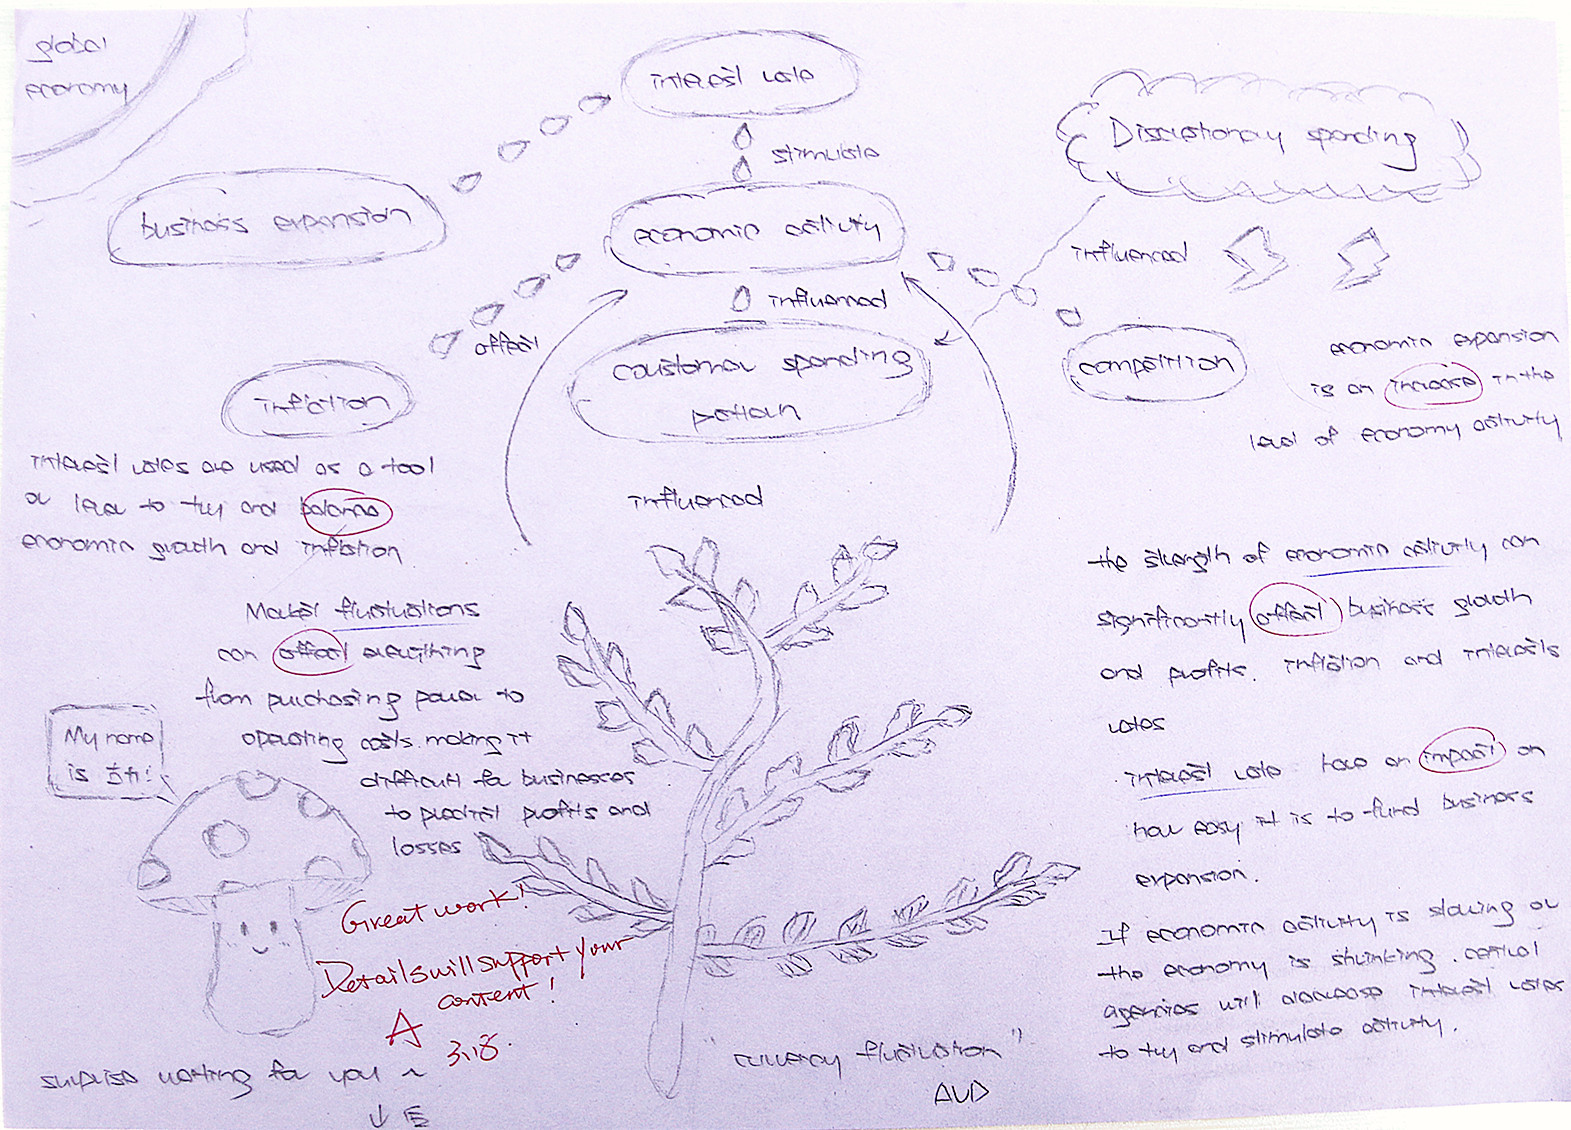 global
economy
interest rate
stimulate
Discretionary spending
business expansion
economic activity
influenced
influenced
affect
coustomer spending
pattern
competition
inflation
economic expansion
is an increase in the
level of economy activity
interest rates are used as a tool
or lever to try and balance
economic growth and inflation
influenced
Market fluctuations
can affect everything
from purchasing power to
operating costs. making it
difficult for businesses
to predict profits and
losses
the strength of economic activity can
significantly affect business growth
and profits. inflation and interests
rates
interest rate have an impact on
how easy it is to fund business
expansion.
If economic activity is slowing or
the economy is shrinking. central
agencies will decrease interest rates
to try and stimulate activity.
My name
is
Great work!
Details will support your
content!
A
3.18.
surprise waiting for you ~
↓
"currency fluctuation"
AUD